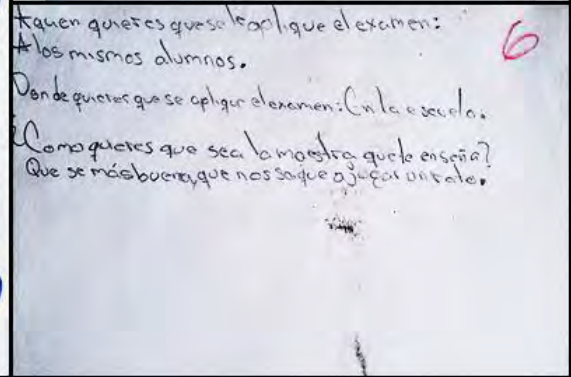 Aquen quieres que se le aplique el examen:
A los mismos alumnos.
6
Donde quieres que se aplique el examen: En la escuela.
¿Como quieres que sea la maestra que te enseña?
Que se más buena, que nos saque a jugar un rato.